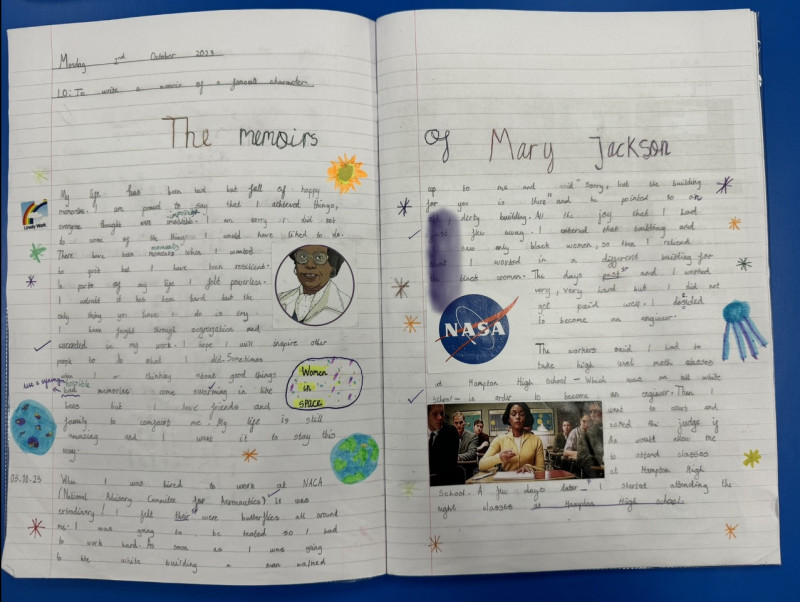 Monday 2nd October 2023
LO: To write a memoir of a famous character.
The memoirs
My life has been bad but full of happy
memories. I am proud to say that I achieved things,
everyone thought were impossible. I am sorry I did not
do some of the things I would have liked to do.
There have been moments when I wanted
to quit but I have been resilient.
In parts of my life I felt powerless.
I admit it has been hard but the
only thing you have to do is try.
I have fought through segregation and
succeeded in my work. I hope I will inspire other
people to do what I did. Sometimes
when I am thinking about good things
horrible
bad memories come swarming in like
bees but I have friends and
family to comfort me. My life is still
amazing and I want it to stay this
way.
Lovely Work
Women
in
space
03.10.23
When I was hired to work at NACA
(National Advisory Committee for Aeronautics) it was
I felt their were butterflies all around
me. I was going to be tested so I had
to work hard. As soon as I was going
to the white building a man walked
of Mary Jackson
up to me and said "sorry, but the building
for you is there" and he pointed to an
dirty building. All the joy that I had
flew away. I entered that building and
saw only black women, so then I realised
that I worked in a different building for
black women. The days past and I worked
very, very hard but I did not
get paid well. I decided
to become an engineer.
NASA
The workers said I had to
take high level math classes
at Hampton High school - which was an all white
school - in order to become an engineer. Then I
went to court and
asked the judge if
he would allow me
to attend classes
at Hampton High
School. A few days later I started attending the
night classes at Hampton High school.